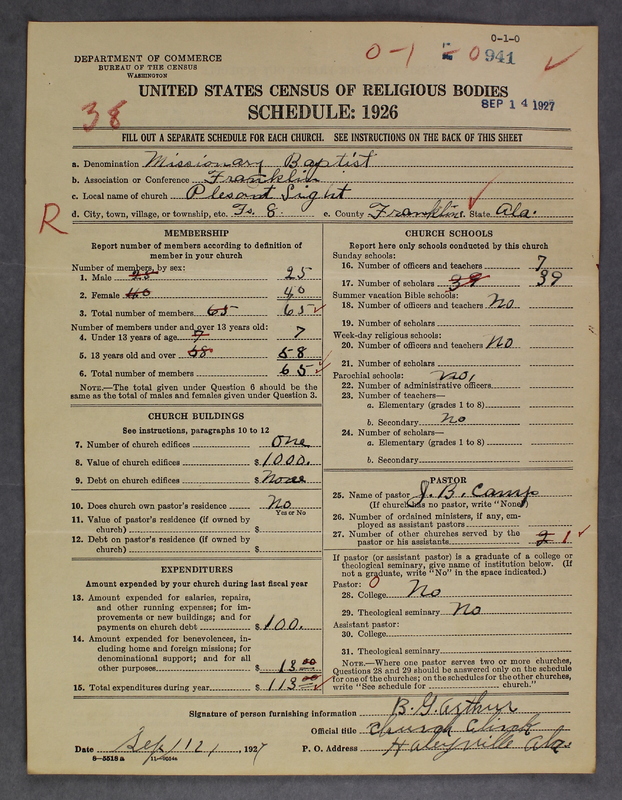 0-1-0
0-1-0 941
DEPARTMENT OF COMMERCE
BUREAU OF THE CENSUS
WASHINGTON
UNITED STATES CENSUS OF RELIGIOUS BODIES
38
SCHEDULE: 1926
SEP 14 1927
FILL OUT A SEPARATE SCHEDULE FOR EACH CHURCH. SEE INSTRUCTIONS ON THE BACK OF THIS SHEET
a. Denomination Missionary Baptist
b. Association or Conference Franklin
c. Local name of church Plesant Sight
R
d. City, town, village, or township, etc. Ts. 8. e. County Franklin. State Ala.
MEMBERSHIP
Report number of members according to definition of
member in your church
Number of members, by sex:
1. Male 25 25
2. Female 40 40
3. Total number of members 65 65
Number of members under and over 13 years old:
4. Under 13 years of age 7 7
5. 13 years old and over 58 58
6. Total number of members 65
NOTE.—The total given under Question 6 should be the
same as the total of males and females given under Question 3.
CHURCH BUILDINGS
See instructions, paragraphs 10 to 12
7. Number of church edifices one
8. Value of church edifices $1000.
9. Debt on church edifices $None
10. Does church own pastor's residence No
Yes or No
11. Value of pastor's residence (if owned by
church) $
12. Debt on pastor's residence (if owned by
church) $
EXPENDITURES
Amount expended by your church during last fiscal year
13. Amount expended for salaries, repairs,
and other running expenses; for im-
provements or new buildings; and for
payments on church debt $100.
14. Amount expended for benevolences, in-
cluding home and foreign missions; for
denominational support; and for all
other purposes $ 13 00
15. Total expenditures during year $ 113 00
CHURCH SCHOOLS
Report here only schools conducted by this church
Sunday schools:
16. Number of officers and teachers 7
17. Number of scholars 39 39
Summer vacation Bible schools:
18. Number of officers and teachers No
19. Number of scholars
Week-day religious schools:
20. Number of officers and teachers No
21. Number of scholars
Parochial schools: no,
22. Number of administrative officers
23. Number of teachers—
a. Elementary (grades 1 to 8)
b. Secondary No
24. Number of scholars—
a. Elementary (grades 1 to 8)
b. Secondary
PASTOR
25. Name of pastor J. B. Camp
(If church has no pastor, write "None")
26. Number of ordained ministers, if any, em-
ployed as assistant pastors
27. Number of other churches served by the
pastor or his assistants 2 1
If pastor (or assistant pastor) is a graduate of a college or
theological seminary, give name of institution below. (If
not a graduate, write "No" in the space indicated.)
Pastor: 0
28. College No
29. Theological seminary No
Assistant pastor:
30. College
31. Theological seminary
NOTE.—Where one pastor serves two or more churches,
Questions 28 and 29 should be answered only on the schedule
for one of the churches; on the schedules for the other churches,
write "See schedule for church."
Signature of person furnishing information B. G. Arthur
Official title Church Clirck
Date Sep 112, 1927 P. O. Address Haleyville Ala.
8—5518a